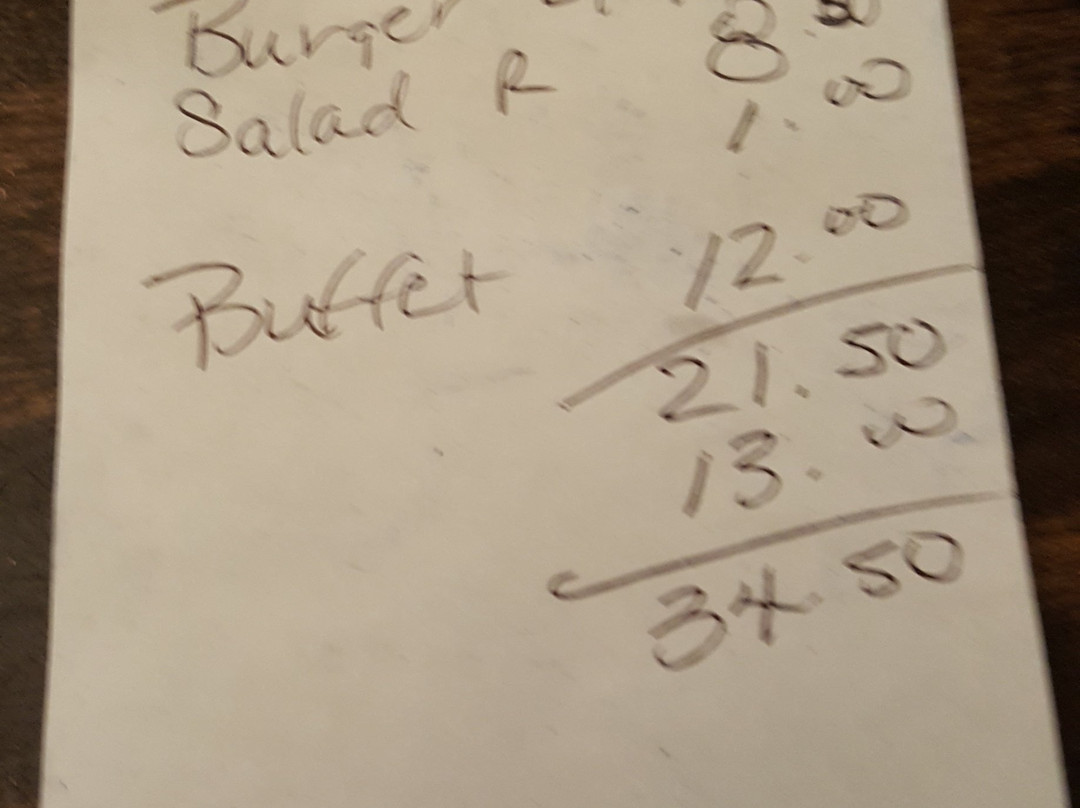 Burger 8.50
Salad R 1.00
Buffet 12.00
21.50
13.00
34.50